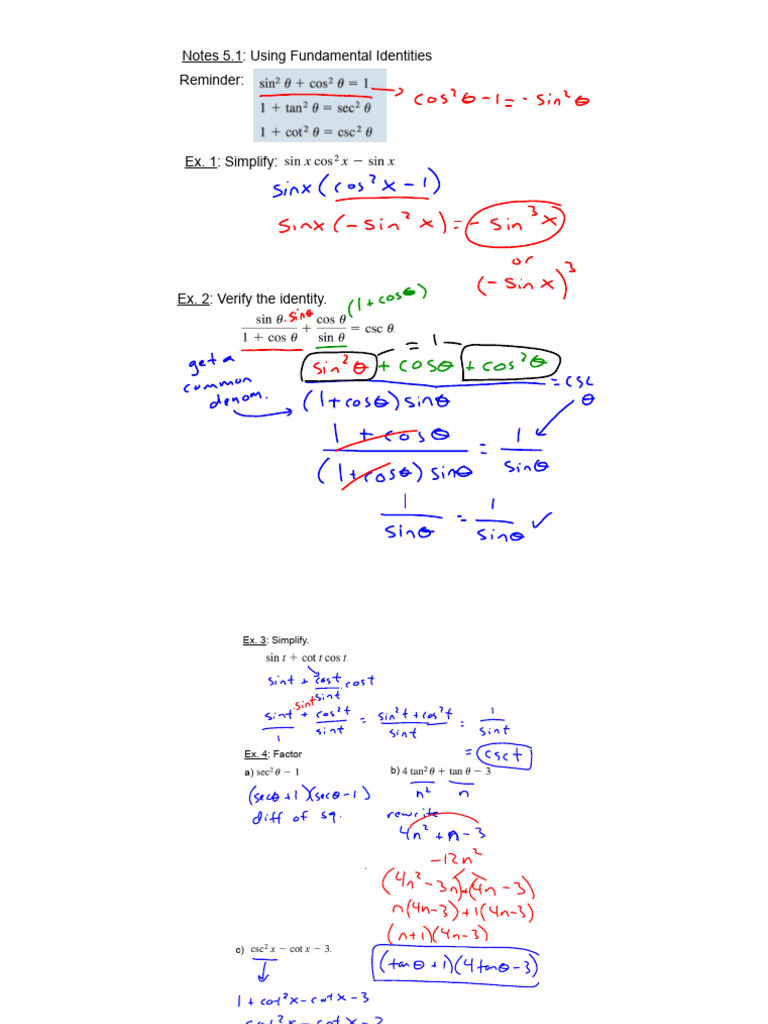 Notes 5.1: Using Fundamental Identities
Reminder: sin² θ + cos² θ = 1 → cos²θ - 1 = - sin²θ
1 + tan² θ = sec² θ
1 + cot² θ = csc² θ
Ex. 1: Simplify: sin x cos² x − sin x.
sinx (cos²x - 1)
sinx (-sin²x) = -sin³x
or
(-sinx)³
Ex. 2: Verify the identity. (1+cosθ)
sin θ · sinθ / 1 + cos θ + cos θ / sin θ = csc θ.
= 1
get a common denom.
sin²θ + cosθ + cos²θ / (1+cosθ) sinθ = csc θ
1 + cosθ / (1+cosθ) sinθ = 1 / sinθ
1 / sinθ = 1 / sinθ ✓
Ex. 3: Simplify.
sin t + cot t cos t.
sint + cost / sint · cost
sint · sint / 1 + cos²t / sint = sin²t + cos²t / sint = 1 / sint
= csct
Ex. 4: Factor
a) sec² θ − 1
(secθ+1)(secθ-1)
diff of sq.
b) 4 tan² θ + tan θ − 3
n² n
rewrite
4n² + n - 3
-12n²
(4n² - 3n)+(4n - 3)
n(4n-3)+1(4n-3)
(n+1)(4n-3)
(tanθ+1)(4tanθ-3)
c) csc² x − cot x − 3.
1 + cot²x - cot x - 3